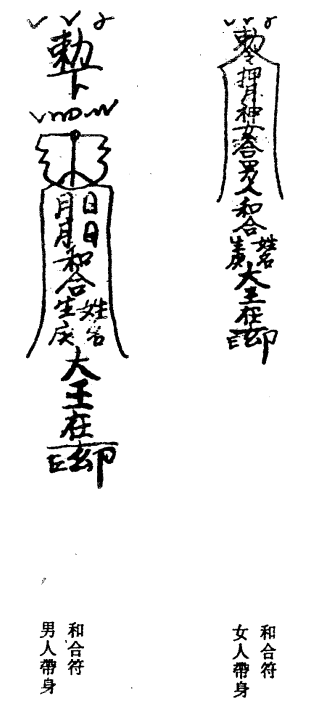 勅令
神女合男人
和合
姓名
生庚
大王在
和合符
女人帶身
勅下
日日
月月
和合
姓名
生庚
大王在
和合符
男人帶身